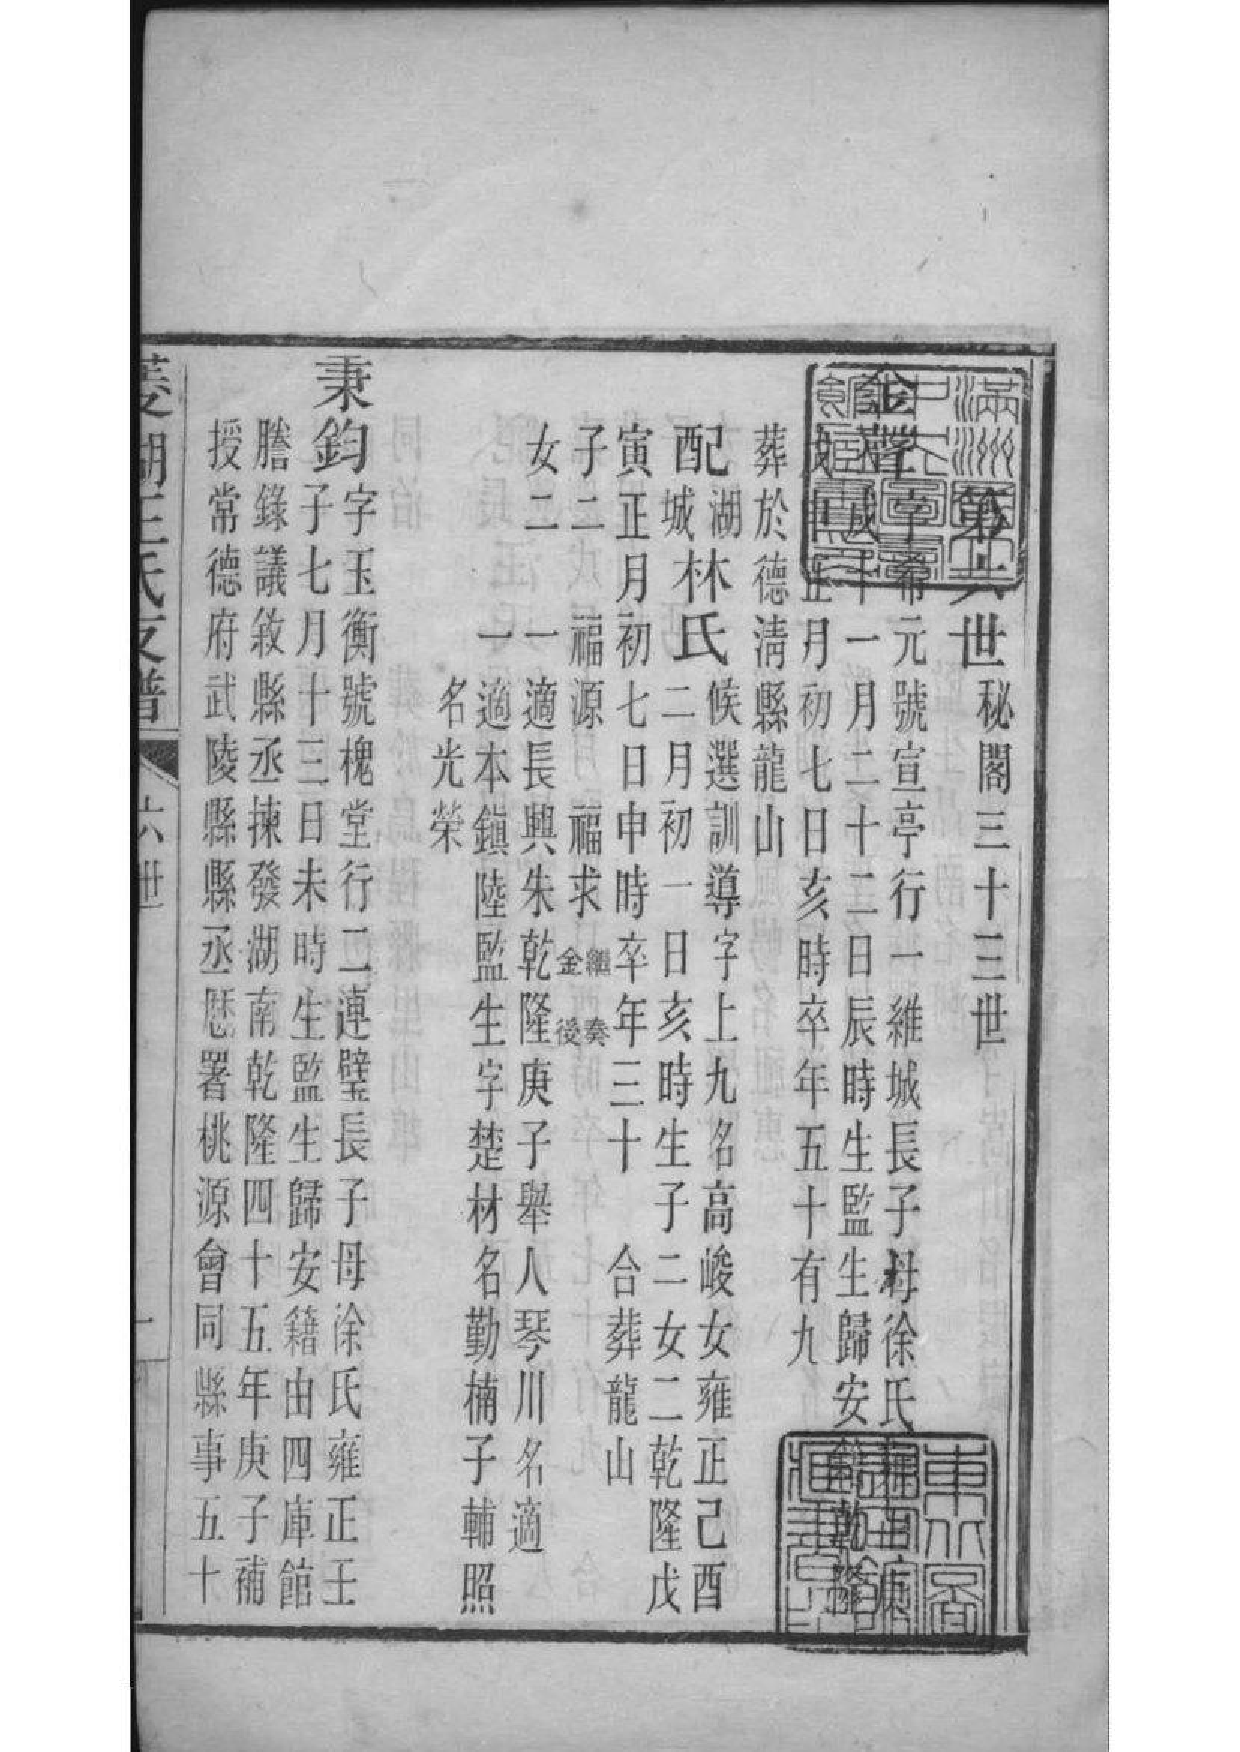 第六世秘閣三十三世
字希元號宣亭行一維城長子母徐氏
戌十一月二十二日辰時生監生歸安籍乾隆
正月初七日亥時卒年五十有九
葬於德清縣龍山
配湖城林氏候選訓導字上九名高峻女雍正己酉
二月初一日亥時生子二女二乾隆戊
寅正月初七日申時卒年三十 合葬龍山
子二 福源 福求繼奏金後
女二 一適長興朱乾隆庚子舉人琴川名適
一適本鎮陸監生字楚材名勤楠子輔照
名光榮
秉鈞字玉衡號槐堂行二連璧長子母涂氏雍正壬
子七月十三日未時生監生歸安籍由四庫館
謄錄議敘縣丞揀發湖南乾隆四十五年庚子補
授常德府武陵縣縣丞歴署桃源會同縣事五十
菱湖王氏支譜 六世 一